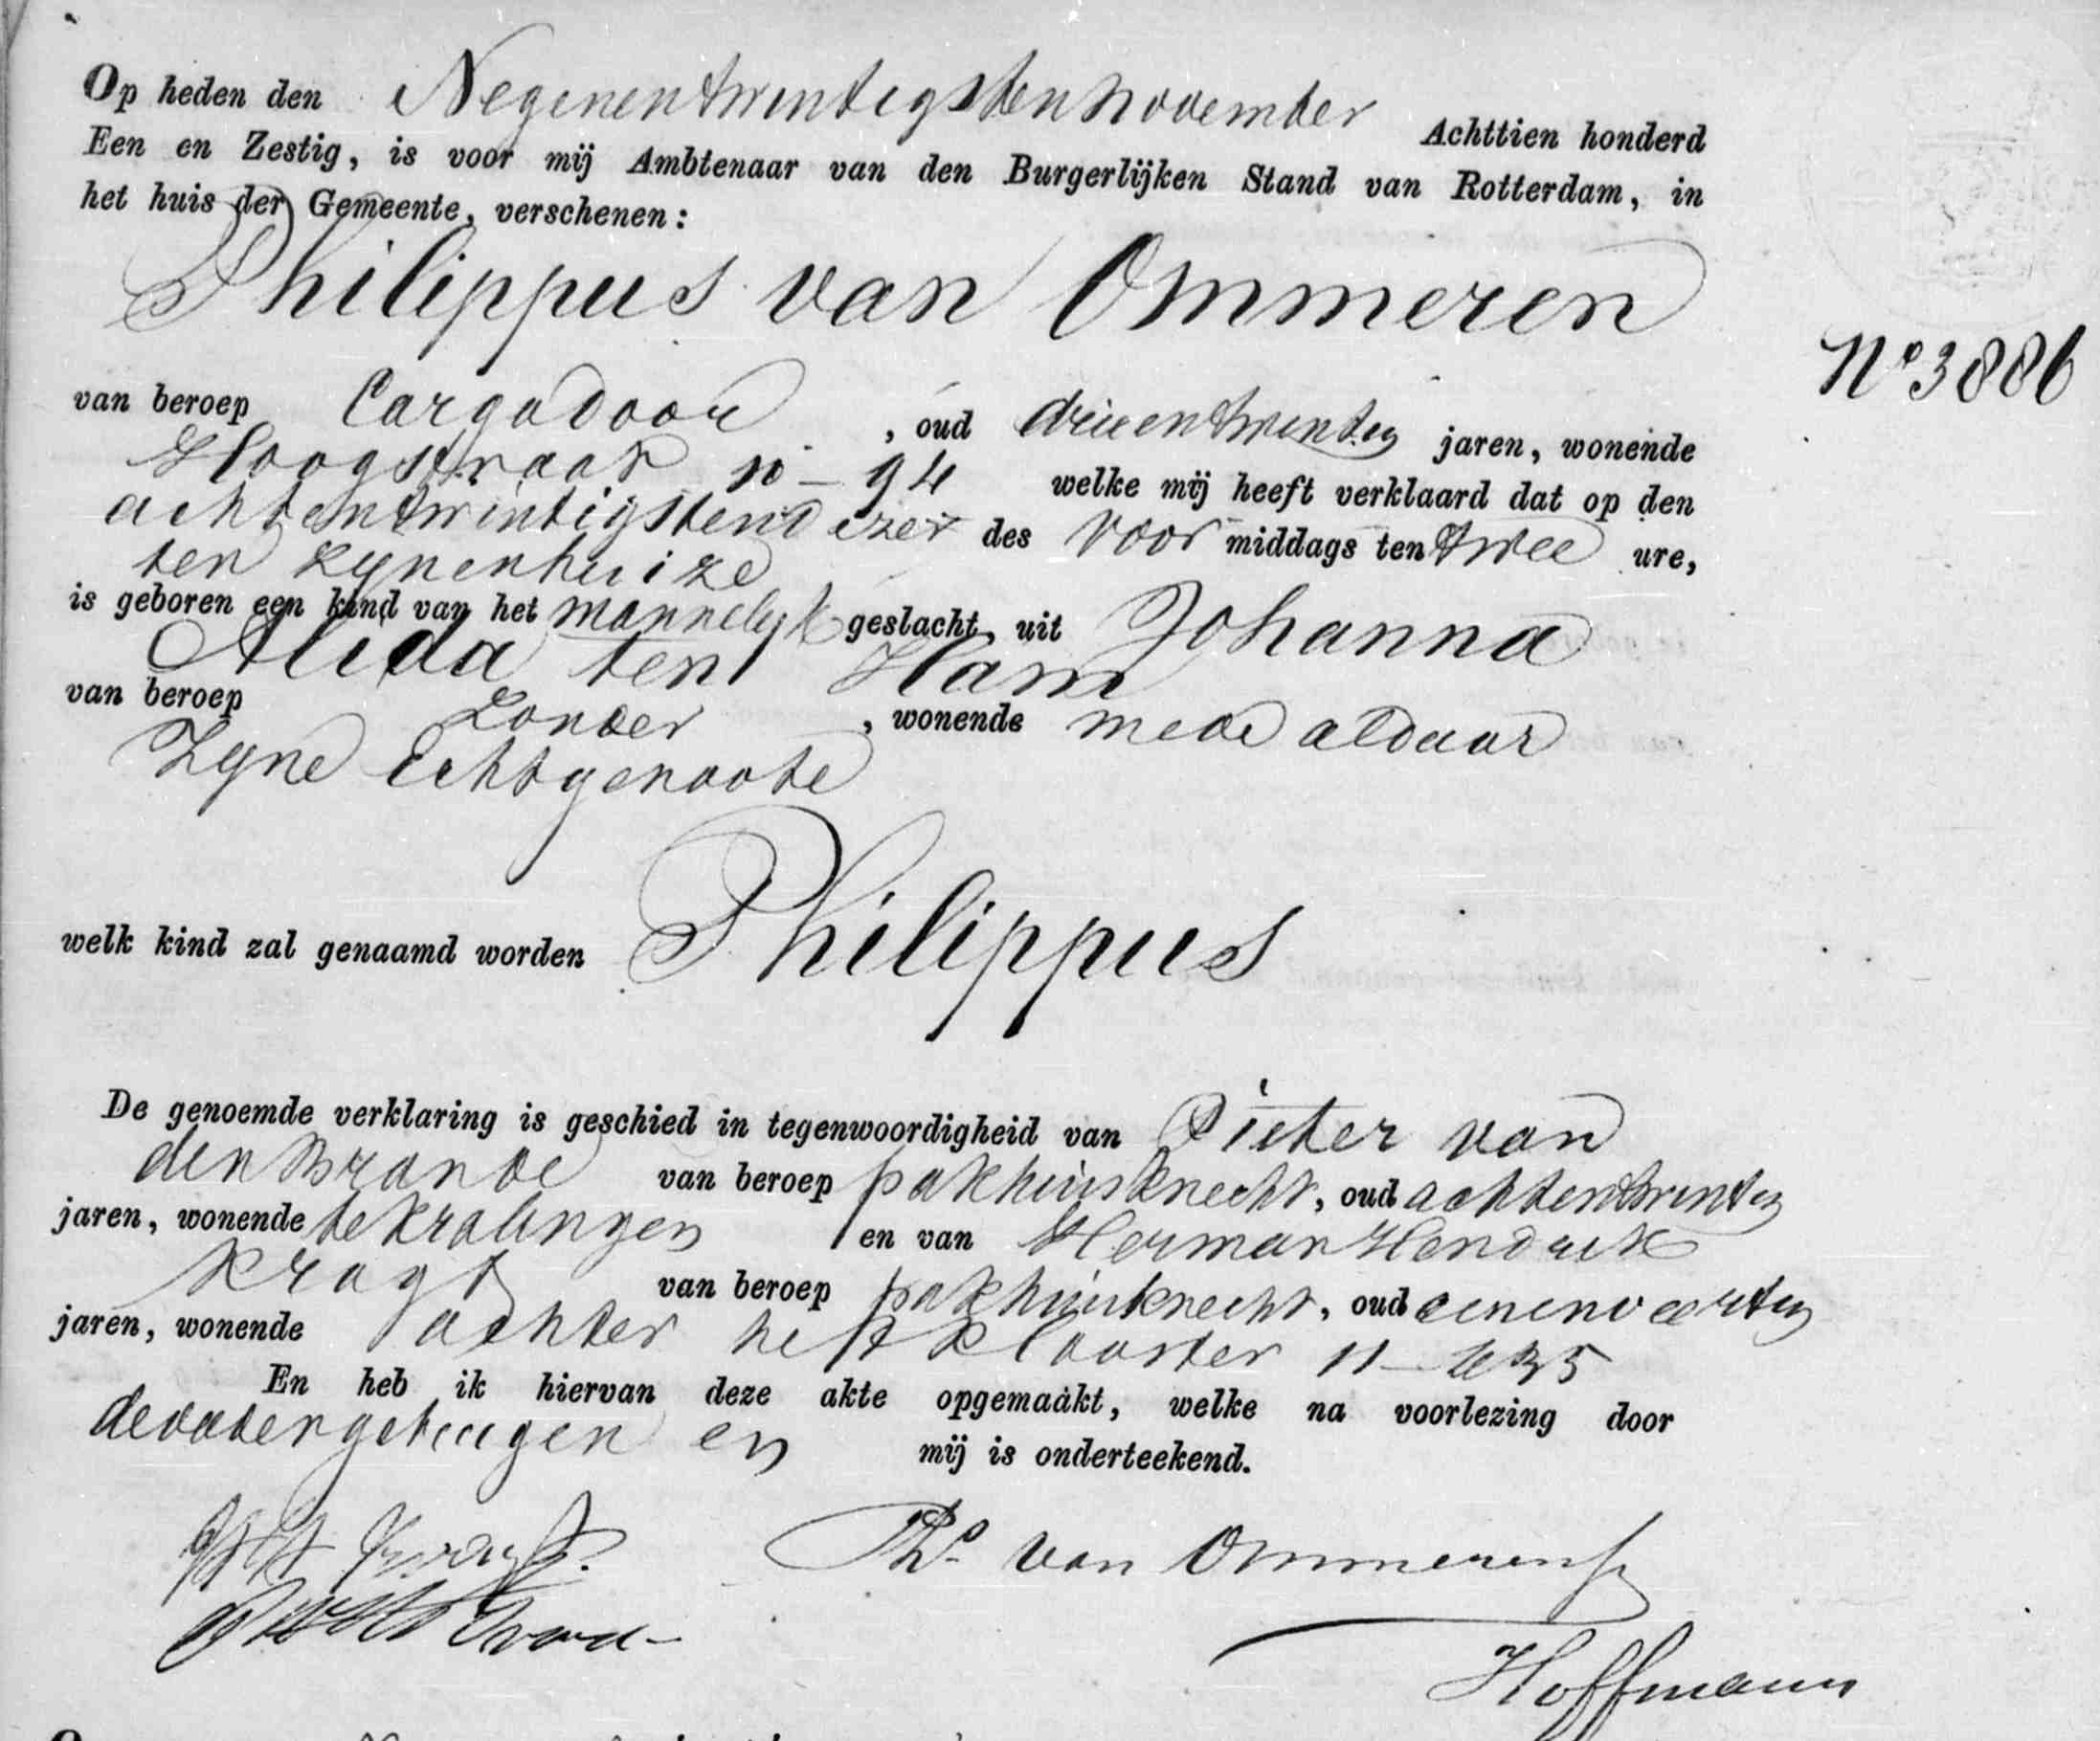 Op heden den Negenentwintigsten November Achttien honderd
Een en Zestig, is voor mij Ambtenaar van den Burgerlijken Stand van Rotterdam, in
het huis der Gemeente, verschenen:
Philippus van Ommeren
No 3886
van beroep Cargadoor, oud drieentwintig jaren, wonende
Hoogstraat no 94 welke mij heeft verklaard dat op den
achtentwintigsten dezer des voor middags ten twee ure,
ten zynen huize
is geboren een kind van het mannelyk geslacht, uit Johanna
Alida ten Ham
van beroep zonder, wonende mede aldaar
Zyne Echtgenoote
welk kind zal genaamd worden Philippus
De genoemde verklaring is geschied in tegenwoordigheid van Pieter van
den Brande van beroep pakhuisknecht, oud achtentwintig
jaren, wonende te Kralingen en van Herman Hendrik
Kragt van beroep pakhuisknecht, oud eenenveertig
jaren, wonende achter het Klooster 11
En heb ik hiervan deze akte opgemaakt, welke na voorlezing door
de vader getuigen en mij is onderteekend.
Phs van Ommeren
Hoffmann